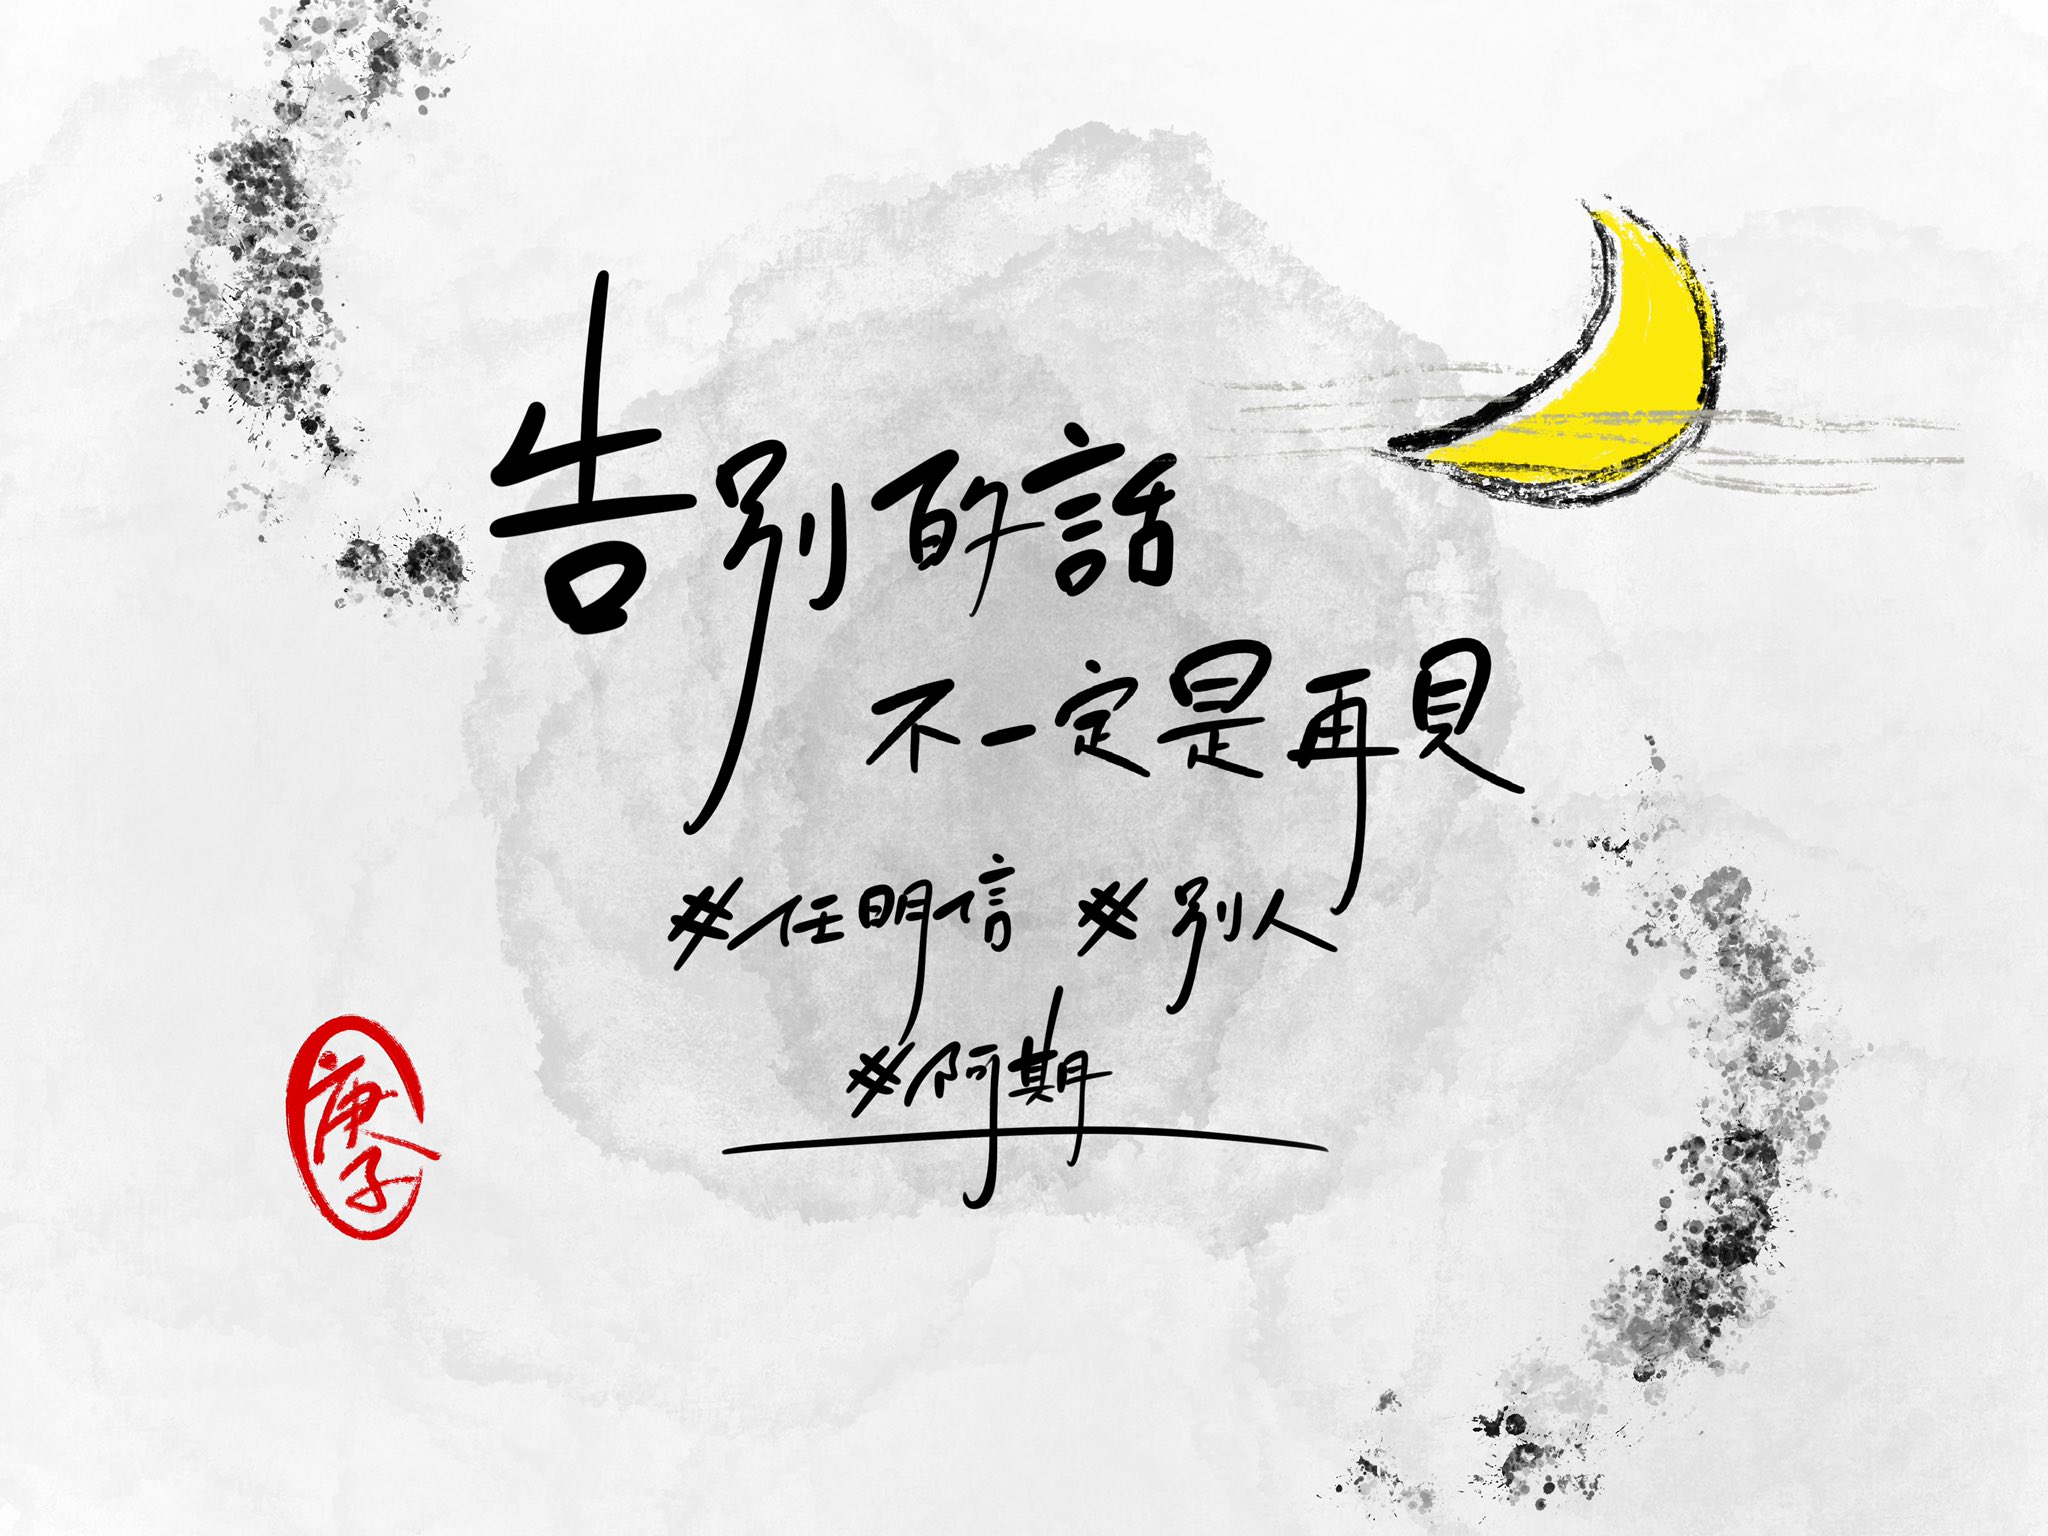 告別的話
不一定是再見
#任明信 #別人
#阿期
庚子